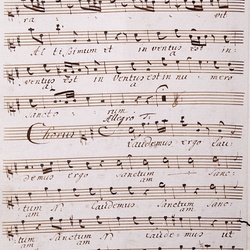 ra vit
At ti simum et in ventus est in
ventus est in ventus est in nu mero
sancto rum
Allegro
Chorus Caudemus ergo Cau
demus ergo Sanctum Sanc
am am
tum N Caudemus Sanctum Sanc
am am am
tum N Caudemus ut
am